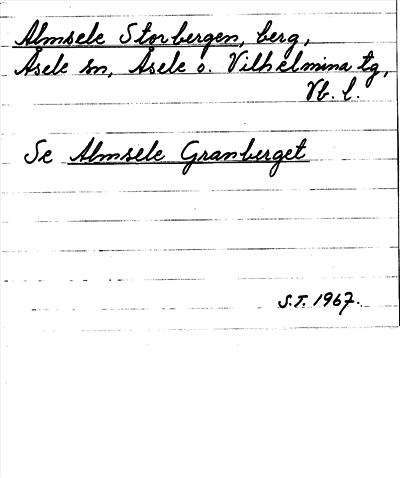 Almsele Storbergen, berg,
Åsele sn, Åsele o. Vilhelmina tg,
Vb. l.
Se Almsele Granberget
S.T. 1967.